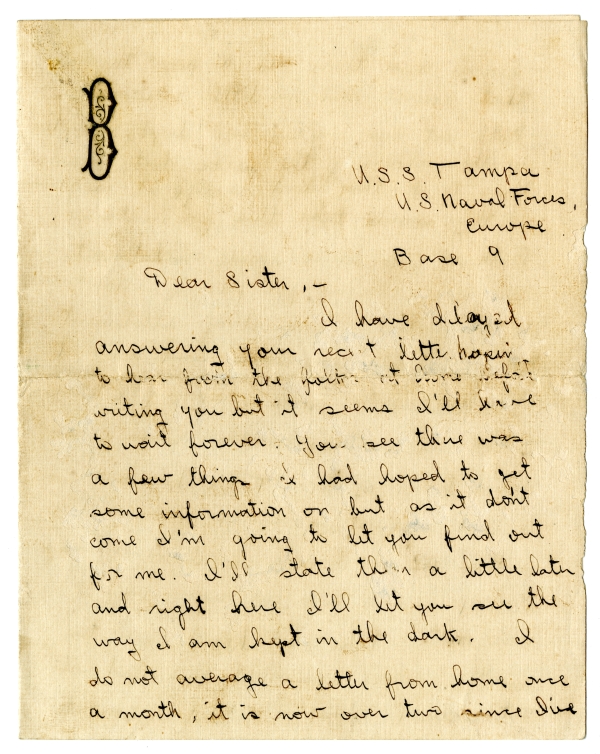 B
U.S.S. Tampa
U.S. Naval Forces,
Europe
Base 9
Dear Sister, –
I have delayed
answering your recent letter hoping
to hear from the folks at home before
writing you but it seems I'll have
to wait forever. You see there was
a few things I had hoped to get
some information on but as it don't
come I'm going to let you find out
for me. I'll state them a little later
and right here I'll let you see the
way I am kept in the dark. I
do not average a letter from home once
a month, it is now over two since I've